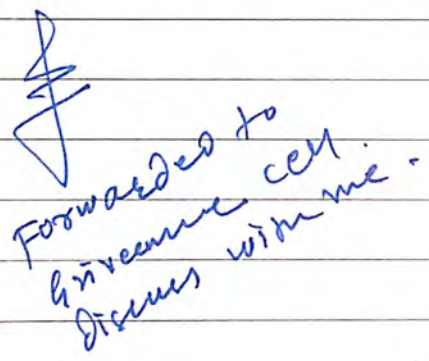 Forwarded to
Griveance cell.
Discuss with me.